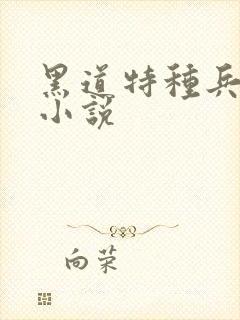 黑道特種兵
小説
向荣